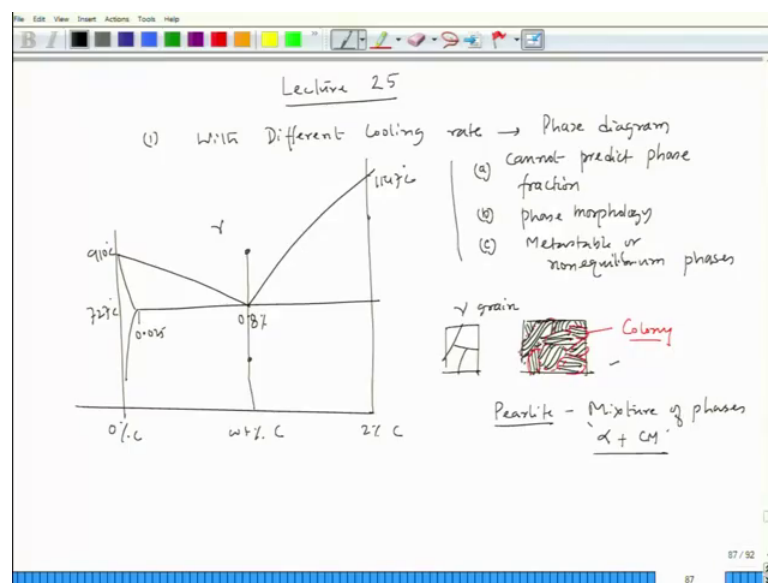 File Edit View Insert Actions Tools Help
B I
Lecture 25
(1) With Different Cooling rate → Phase diagram
(a) Cannot predict phase
fraction
(b) phase morphology
(c) Metastable or
nonequilibrium phases
1147°C
γ
910°C
727°C
0.025
0.8%
γ grain
Colony
Pearlite - Mixture of phases
"α + CM"
0% C
wt% C
2% C
87/92
87